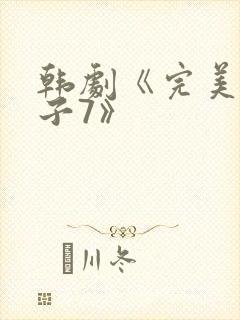 韩剧《完美
子7》
川冬